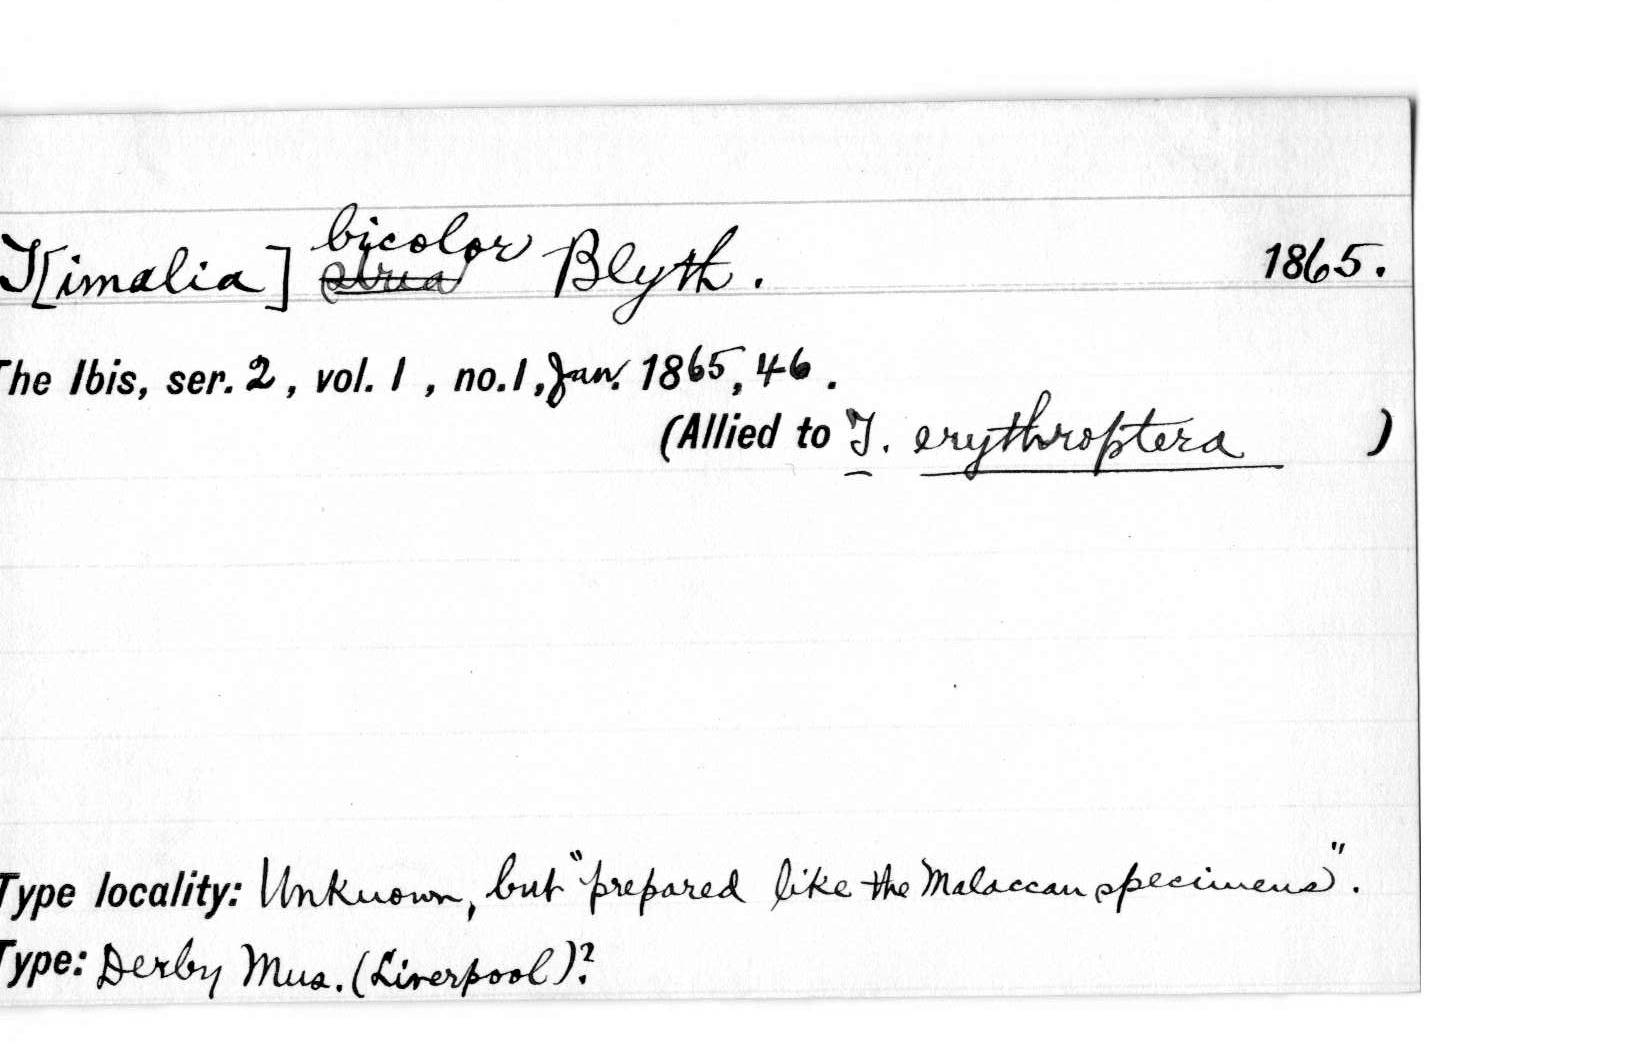 T[imalia] bicolor Blyth. 1865.
The Ibis, ser. 2, vol. 1, no. 1, Jan. 1865, 46.
(Allied to T. erythroptera )
Type locality: Unknown, but "prepared like the Malaccan specimens".
Type: Derby Mus. (Liverpool)?